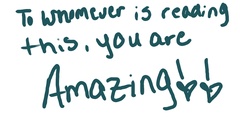 To whomever is reading
this, you are
Amazing!!